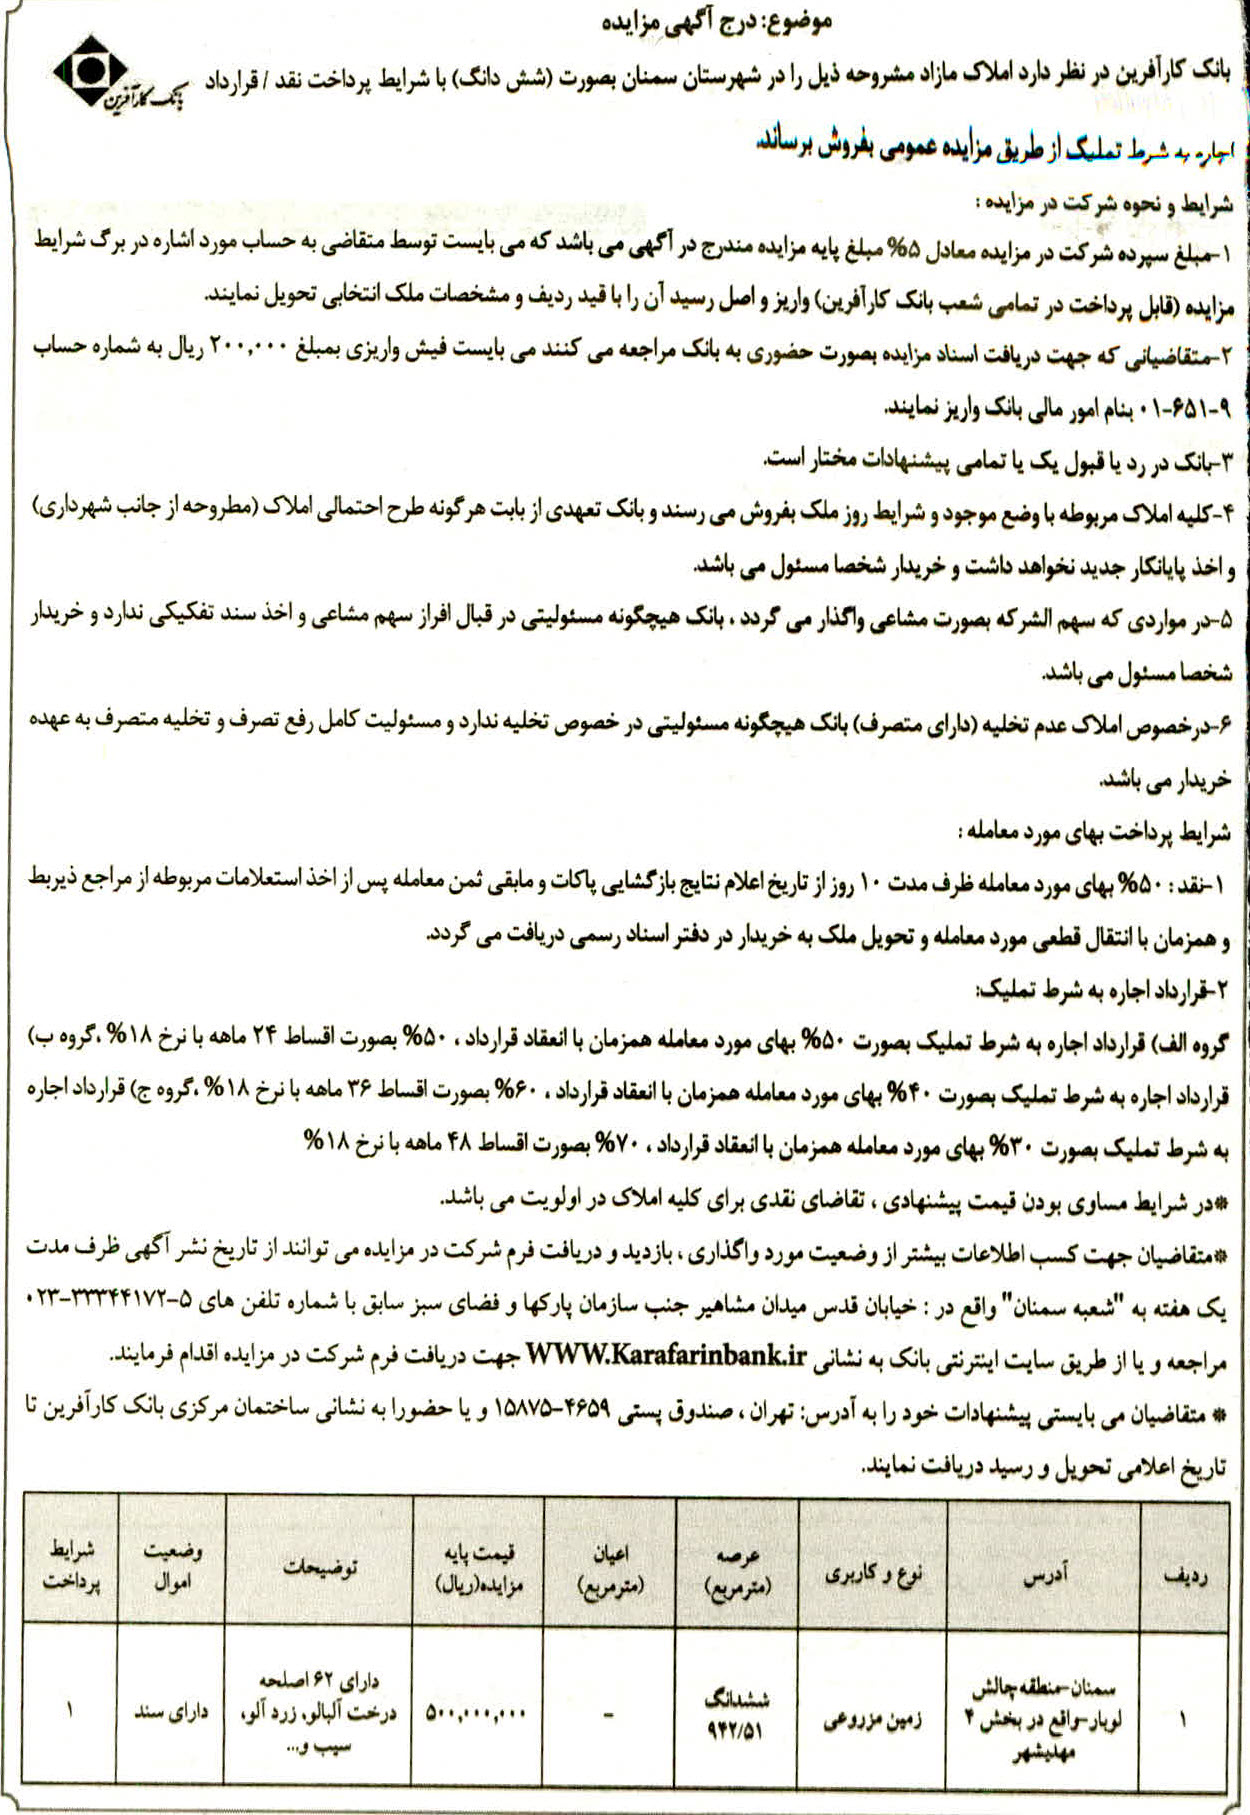 موضوع: درج آگهی مزایده
بانک کارآفرین
بانک کارآفرین در نظر دارد املاک مازاد مشروحه ذیل را در شهرستان سمنان بصورت (شش دانگ) با شرایط پرداخت نقد / قرارداد
اجاره به شرط تملیک از طریق مزایده عمومی بفروش برساند.
شرایط و نحوه شرکت در مزایده :
۱-مبلغ سپرده شرکت در مزایده معادل ۵% مبلغ پایه مزایده مندرج در آگهی می باشد که می بایست توسط متقاضی به حساب مورد اشاره در برگ شرایط
مزایده (قابل پرداخت در تمامی شعب بانک کارآفرین) واریز و اصل رسید آن را با قید ردیف و مشخصات ملک انتخابی تحویل نمایند.
۲-متقاضیانی که جهت دریافت اسناد مزایده بصورت حضوری به بانک مراجعه می کنند می بایست فیش واریزی بمبلغ ۲۰۰,۰۰۰ ریال به شماره حساب
۰۱-۶۵۱-۹ بنام امور مالی بانک واریز نمایند.
۳-بانک در رد یا قبول یک یا تمامی پیشنهادات مختار است.
۴-کلیه املاک مربوطه با وضع موجود و شرایط روز ملک بفروش می رسند و بانک تعهدی از بابت هرگونه طرح احتمالی املاک (مطروحه از جانب شهرداری)
و اخذ پایانکار جدید نخواهد داشت و خریدار شخصا مسئول می باشد.
۵-در مواردی که سهم الشرکه بصورت مشاعی واگذار می گردد ، بانک هیچگونه مسئولیتی در قبال افراز سهم مشاعی و اخذ سند تفکیکی ندارد و خریدار
شخصا مسئول می باشد.
۶-درخصوص املاک عدم تخلیه (دارای متصرف) بانک هیچگونه مسئولیتی در خصوص تخلیه ندارد و مسئولیت کامل رفع تصرف و تخلیه متصرف به عهده
خریدار می باشد.
شرایط پرداخت بهای مورد معامله :
۱-نقد : ۵۰% بهای مورد معامله ظرف مدت ۱۰ روز از تاریخ اعلام نتایج بازگشایی پاکات و مابقی ثمن معامله پس از اخذ استعلامات مربوطه از مراجع ذیربط
و همزمان با انتقال قطعی مورد معامله و تحویل ملک به خریدار در دفتر اسناد رسمی دریافت می گردد.
۲-قرارداد اجاره به شرط تملیک:
گروه الف) قرارداد اجاره به شرط تملیک بصورت ۵۰% بهای مورد معامله همزمان با انعقاد قرارداد ، ۵۰% بصورت اقساط ۲۴ ماهه با نرخ ۱۸% ،گروه ب)
قرارداد اجاره به شرط تملیک بصورت ۴۰% بهای مورد معامله همزمان با انعقاد قرارداد ، ۶۰% بصورت اقساط ۳۶ ماهه با نرخ ۱۸% ،گروه ج) قرارداد اجاره
به شرط تملیک بصورت ۳۰% بهای مورد معامله همزمان با انعقاد قرارداد ، ۷۰% بصورت اقساط ۴۸ ماهه با نرخ ۱۸%
*در شرایط مساوی بودن قیمت پیشنهادی ، تقاضای نقدی برای کلیه املاک در اولویت می باشد.
*متقاضیان جهت کسب اطلاعات بیشتر از وضعیت مورد واگذاری ، بازدید و دریافت فرم شرکت در مزایده می توانند از تاریخ نشر آگهی ظرف مدت
یک هفته به "شعبه سمنان" واقع در : خیابان قدس میدان مشاهیر جنب سازمان پارکها و فضای سبز سابق با شماره تلفن های ۵-۳۳۳۴۴۱۷۲-۰۲۳
مراجعه و یا از طریق سایت اینترنتی بانک به نشانی WWW.Karafarinbank.ir جهت دریافت فرم شرکت در مزایده اقدام فرمایند.
* متقاضیان می بایستی پیشنهادات خود را به آدرس: تهران ، صندوق پستی ۴۶۵۹-۱۵۸۷۵ و یا حضورا به نشانی ساختمان مرکزی بانک کارآفرین تا
تاریخ اعلامی تحویل و رسید دریافت نمایند.
ردیف آدرس نوع و کاربری عرصه (مترمربع) اعیان (مترمربع) قیمت پایه مزایده(ریال) توضیحات وضعیت اموال شرایط پرداخت
۱ سمنان-منطقه چالش لوبار-واقع در بخش ۴ مهدیشهر زمین مزروعی ششدانگ ۹۴۲/۵۱ - ۵۰۰,۰۰۰,۰۰۰ دارای ۶۲ اصلحه درخت آلبالو، زرد آلو، سیب و... دارای سند ۱